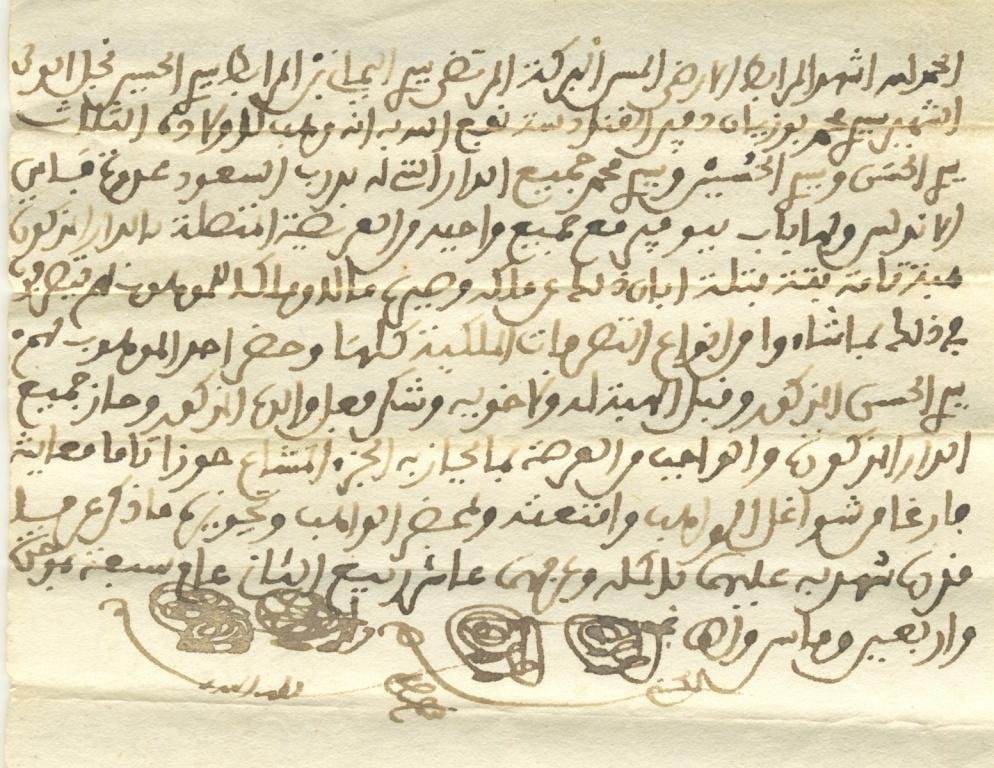 الحمد لله اشهد المرابط الارضى البركة المرتضى سيدي ابن المرابط سيدي الحسين نجل الولي
الشهير سيدي محمد بوزيان دفين القنادسة نفع الله به انه وهب لاولاده الثلاث
سيدي الحسن وسيدي الحسين وسيدي محمد جميع الدار التي له بدرب السعود عدوة فاس
الاندلس مع جميع واجبه من العرصة المتصلة بالدار المذكورة
هبة تامة بتة بتلة ابان ذلك عن ملكه وصيره مالا وملكا للموهوب لهم يتصرفون
في ذلك بما شاءوا من انواع التصرفات الملكية كلها وحضر احد الموهوب لهم
سيدي الحسن المذكور وقبل الهبة له ولاخويه وشكر فعل والده المذكور وحاز جميع
الدار المذكورة والواجب من العرصة بما يحاز به الجزء المشاع حوزا تاما معاينة
فارغا من شواغل الواهب وامتعته وبمحضر الواهب وتحويزه ما ذكر عرف
قدره شهد به عليهما باكمله وعرفهما في عاشر ربيع الثاني عام سبعة
واربعين ومائتين والف